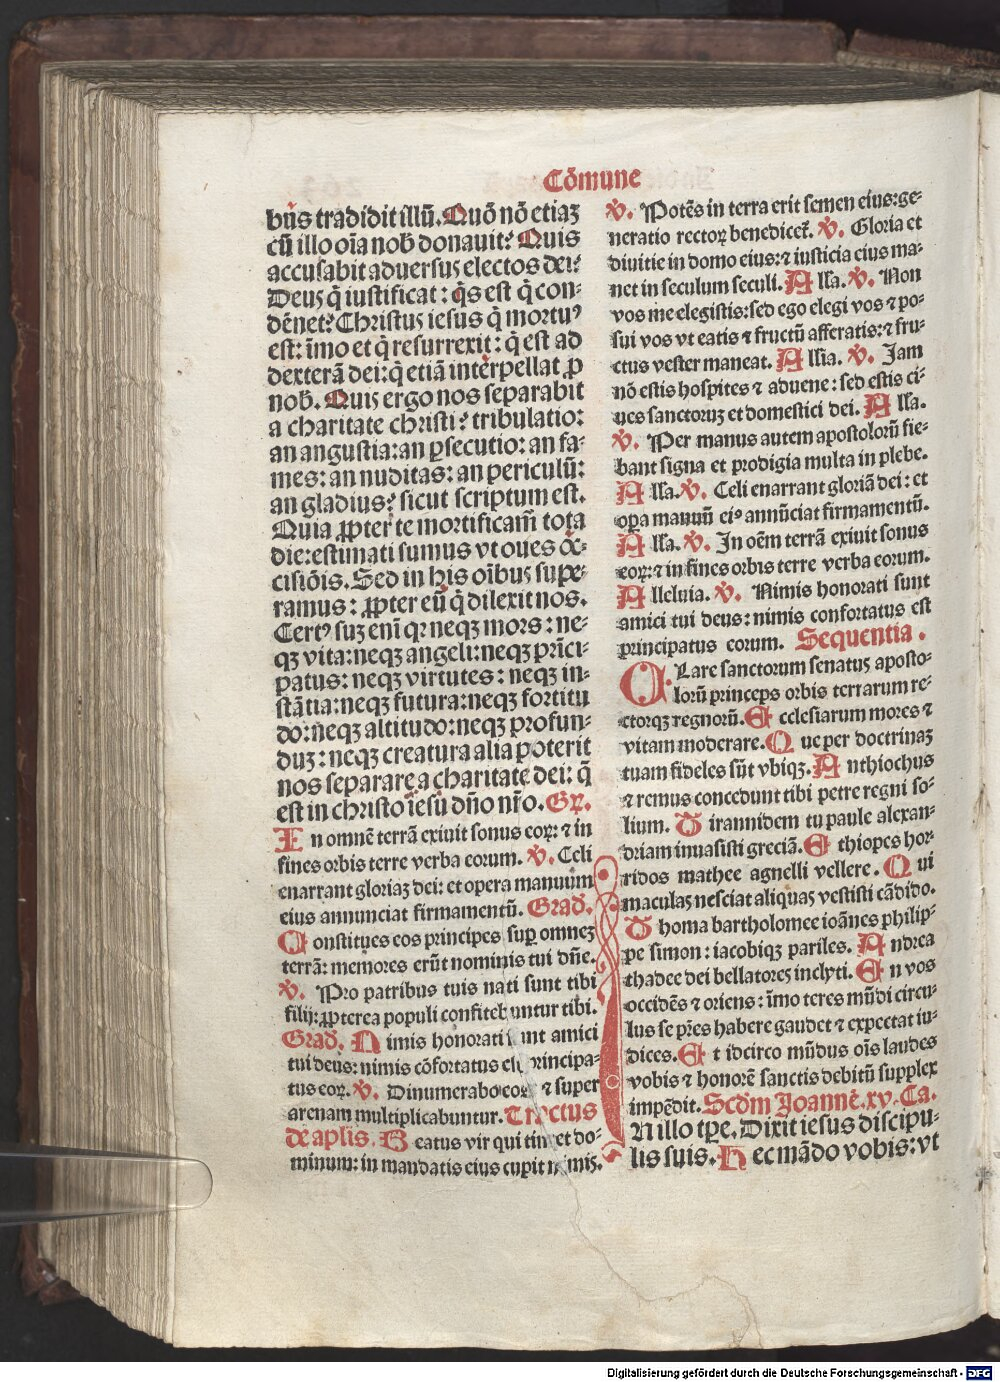 Cōmune
bꝰis tradidit illū. Quō nō etiaꝫ
cū illo oīa nob̄ donauit? Quis
accusabit aduersus electos dei?
Deus q̄ iustificat: q̄s est q̄ con-
dēnet? Christus iesus q̄ mortuꝰ
est: īmo et q̄ resurrexit: q̄ est ad
dexterā dei: q̄ etiā interpellat ꝓ
nob̄. Quis ergo nos separabit
a charitate christi? tribulatio:
an angustia: an ꝑsecutio: an fa-
mes: an nuditas: an periculū:
an gladius? sicut scriptum est.
Quia ꝓpter te mortificam̄ tota
die: estimati sumus vt oues oc-
cisiōis. Sed in his oībus supe-
ramus: ꝓpter eū q̄ dilexit nos.
Certꝰ suꝫ enī qꝛ neqꝫ mors: ne-
qꝫ vita: neqꝫ angeli: neqꝫ prīci-
patus: neqꝫ virtutes: neqꝫ in-
stātia: neqꝫ futura: neqꝫ fortitu
do: neqꝫ altitudo: neqꝫ profun-
duꝫ: neqꝫ creatura alia poterit
nos separare a charitate dei: q̄
est in christo iesu dn̄o nr̄o. Gꝛ.
In omnē terrā exiuit sonus eoꝝ: ⁊ in
fines orbis terre verba eorum. ℣. Celi
enarrant gloriaꝫ dei: et opera manuum
eius annunciat firmamentū. Grad.
Constitues eos principes suꝑ omneꝫ
terrā: memores erūt nominis tui dn̄e.
℣. Pro patribus tuis nati sunt tibi
filij: ꝓpterea populi confitebuntur tibi.
Grad. Nimis honorati sunt amici
tui deus: nimis cōfortatus est principa-
tus eoꝝ. ℣. Dinumerabo eos ⁊ super
arenam multiplicabuntur. Tractus
de aplis. Beatus vir qui timet do-
minum: in mandatis eius cupit nimis.
℣. Potēs in terra erit semen eius: ge-
neratio rectoꝝ benedicet̄. ℣. Gloria et
diuitie in domo eius: ⁊ iusticia eius ma-
net in seculum seculi. Alla. ℣. Non
vos me elegistis: sed ego elegi vos ⁊ po-
sui vos vt eatis ⁊ fructū afferatis: ⁊ fru-
ctus vester maneat. Allia. ℣. Jam
nō estis hospites ⁊ aduene: sed estis ci-
ues sanctoruꝫ et domestici dei. Alla.
℣. Per manus autem apostolorū fie-
bant signa et prodigia multa in plebe.
Alla. ℣. Celi enarrant gloriā dei: et
oꝑa manuū eiꝰ annūciat firmamentū.
Alla. ℣. In oēm terrā exiuit sonus
eoꝝ: ⁊ in fines orbis terre verba eorum.
Alleluia. ℣. Nimis honorati sunt
amici tui deus: nimis confortatus est
principatus eorum. Sequentia.
Clare sanctorum senatus aposto-
lorū princeps orbis terrarum re-
ctorqꝫ regnorū. Ecclesiarum mores ⁊
vitam moderare. Que per doctrinaꝫ
tuam fideles sūt vbiqꝫ. Anthiochus
⁊ remus concedunt tibi petre regni so-
lium. Tirannidem tu paule alexan-
driam inuasisti greciā. Ethiopes hor
ridos mathee agnelli vellere. Qui
maculas nesciat aliquas vestisti cādido.
Thoma bartholomee ioānes philip-
pe simon: iacobiqꝫ pariles. Andrea
thadee dei bellatores inclyti. En vos
occidēs ⁊ oriens: īmo teres mūdi circu-
lus se pr̄es habere gaudet ⁊ expectat iu-
dices. Et idcirco mūdus oīs laudes
vobis ⁊ honorē sanctis debitū supplex
impēdit. Scdm Joannē. xv. Ca.
IN illo tꝑe. Dixit iesus discipu-
lis suis. Hec mādo vobis: vt
Digitalisierung gefördert durch die Deutsche Forschungsgemeinschaft - DFG